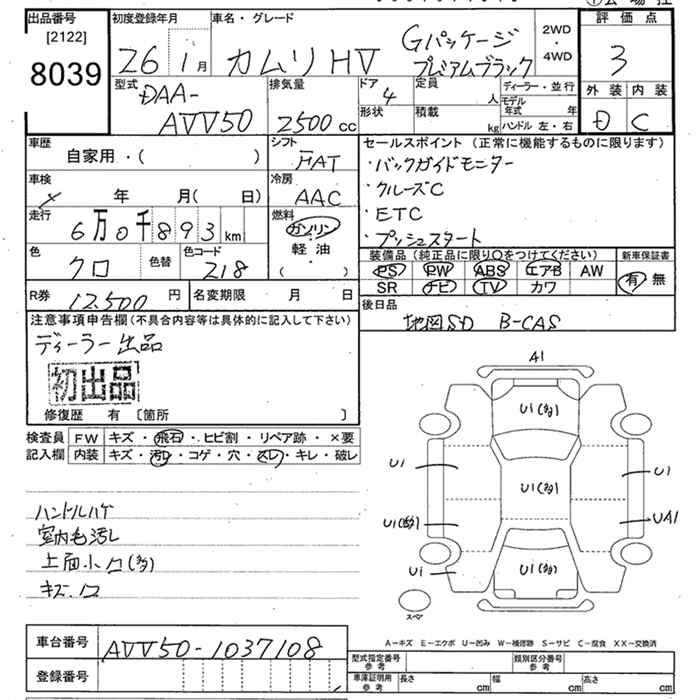 出品番号 [2122] 8039
初度登録年月 26 1月
車名・グレード カムリHV Gパッケージ プレミアムブラック
2WD・4WD
評価点 3
外装 D 内装 C
型式 DAA-AVV50
排気量 2500cc
ドア 4
形状
定員 人
積載 kg
ディーラー・並行
モデル年式 年
ハンドル 左・右
車歴 自家用・( )
シフト FAT
車検 年 月( 日)
冷房 AAC
走行 6万0千893km
燃料 ガソリン・軽油・( )
色 クロ 色替
色コード 218
R券 12,500円
名変期限 月 日
セールスポイント(正常に機能するものに限ります)
・バックガイドモニター
・クルーズC
・ETC
・プッシュスタート
装備品(純正品に限り〇をつけてください) 新車保証書
PS PW ABS エアB AW 有・無
SR ナビ TV カワ
後日品 地図SD B-CAS
注意事項申告欄(不具合内容等は具体的に記入して下さい)
ディーラー出品
初出品
修復歴 有 [箇所 ]
検査員記入欄
FW キズ・飛石・ヒビ割・リペア跡・×要
内装 キズ・汚レ・コゲ・穴・スレ・キレ・破レ
ハンドルハゲ
室内毛汚し
上面小凹(多)
キズ・凹
A1
U1(多)
U1 U1(多) U1
U1(多) UA1
U1 U1(多)
スペア
A－キズ E－エクボ U－凹み W－補修跡 S－サビ C－腐食 XX－交換済
車台番号 AVV50-1037108
登録番号
型式指定番号 参考 類別区分番号 参考
車庫証明用 参考 長さ cm 幅 cm 高さ cm